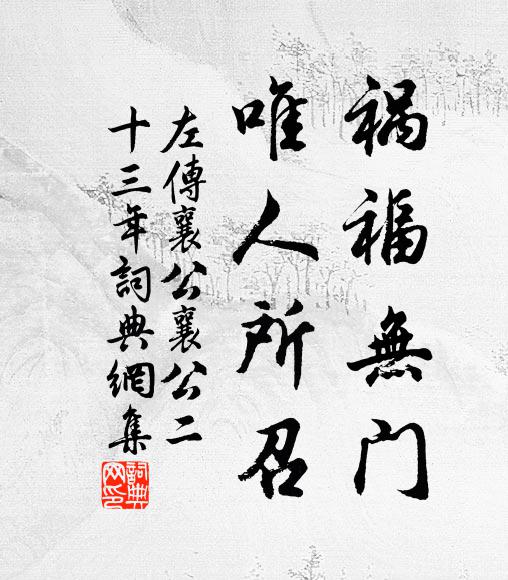 祸福無门
唯人所召
左傳襄公襄公二
十三年詞典網集
詞典網印